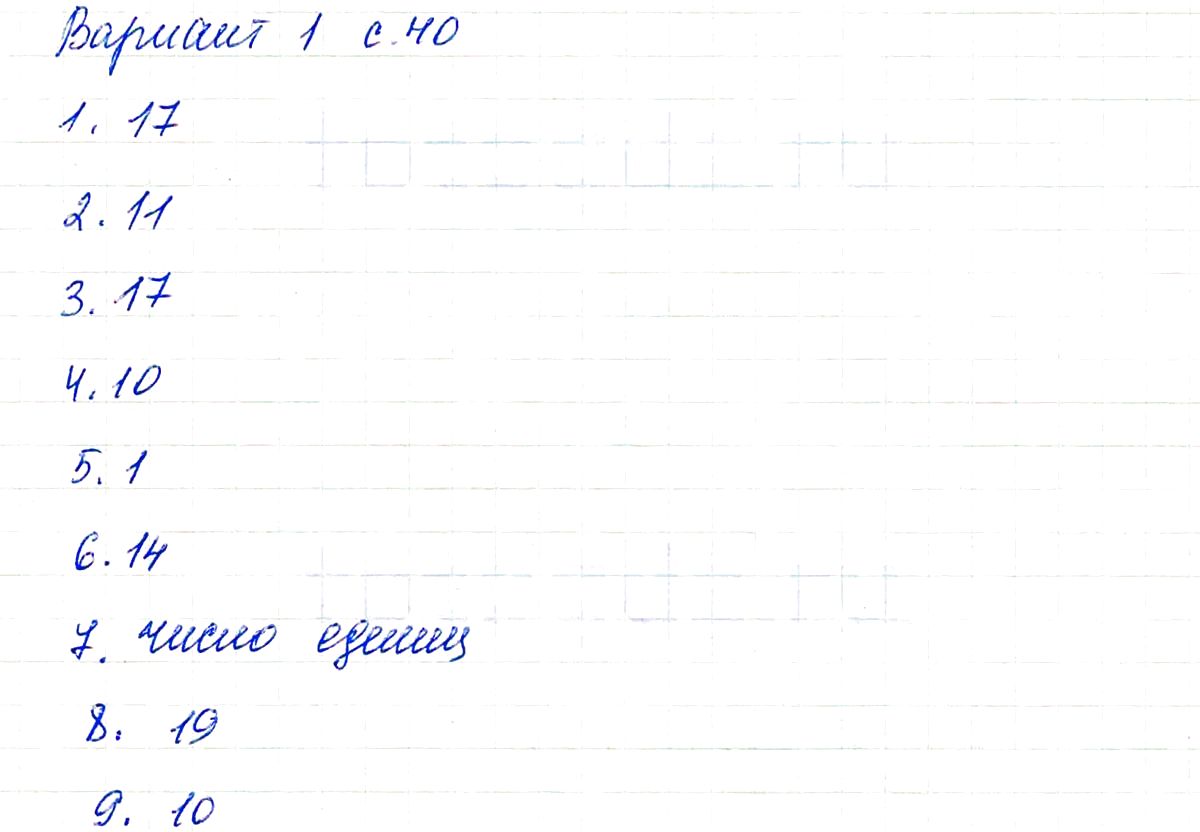 Вариант 1 с.40
1. 17
2. 11
3. 17
4. 10
5. 1
6. 14
7. число единиц
8. 19
9. 10